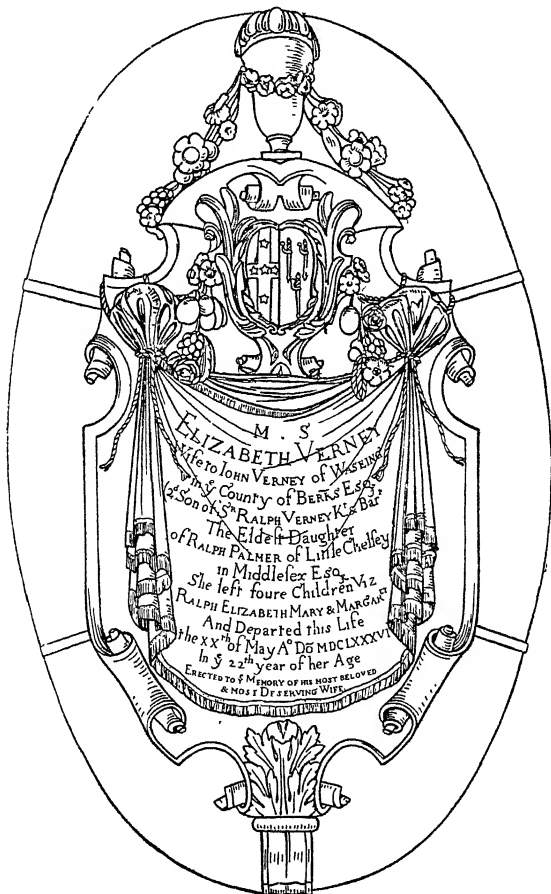 M. S
ELIZABETH VERNEY
Wife to IOHN VERNEY of WASEING
in yͤ County of BERKS Esqʳ
(2ᵈ Son of Sʳ RALPH VERNEY Kᵗ & Barᵗ
The Eldest Daughter
of RALPH PALMER of Little Chelsey
in Middlesex Esqʳ
She left foure Children Viz
RALPH ELIZABETH MARY & MARGARET
And Departed this Life
the XXᵗʰ of May Aᵒ Dō MDCLXXXVI
In yͤ 22ᵗʰ year of her Age
ERECTED TO yͤ MEMORY OF HIS MOST BELOVED
& MOST DESERVING WIFE